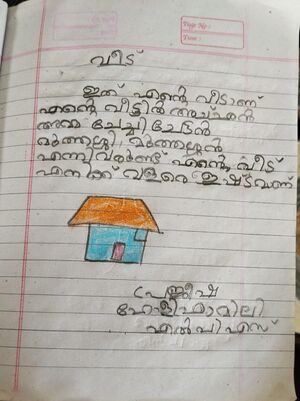 Page No :
Date :
വീട്
ഇത് എന്റെ വീടാണ്
എന്റെ വീട്ടിൽ അച്ഛൻ
അമ്മ ചേച്ചി ചേട്ടൻ
മുത്തശ്ശി, മുത്തശ്ശൻ
എന്നിവരുണ്ട് എന്റെ വീട്
എനിക്ക് വളരെ ഇഷ്ടമാണ്
ഹോളിഫാമിലി
എൽ പി എസ്